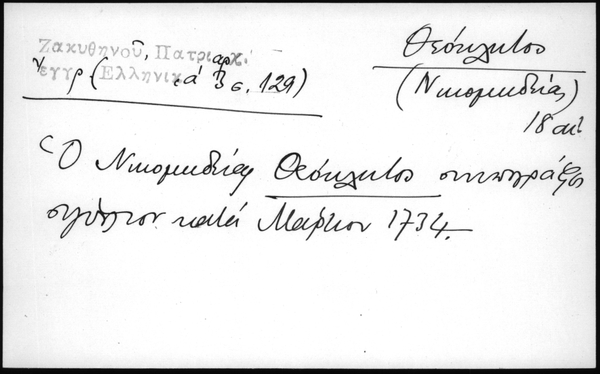 Ζακυθηνοῦ, Πατριαρχ.
ἔγγρ (Ἑλληνικά 3 σ. 129)
Θεόκλητος
(Νικομηδείας)
18 αἰ
Ὁ Νικομηδείας Θεόκλητος συνυπογράφει
σιγίλλιον κατά Μάρτιον 1734.